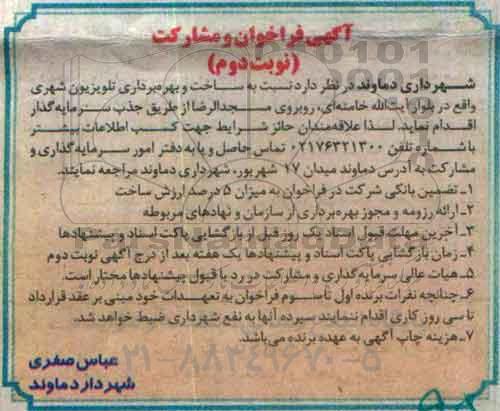 آگهی فراخوان و مشارکت
(نوبت دوم)
شهرداری دماوند در نظر دارد نسبت به ساخت و بهره‌برداری تلویزیون شهری
واقع در بلوار آیت‌الله خامنه‌ای، روبروی مسجدالرضا از طریق جذب سرمایه‌گذار
اقدام نماید. لذا علاقه‌مندان حائز شرایط جهت کسب اطلاعات بیشتر
با شماره تلفن ۰۲۱۷۶۳۲۱۳۰۰ تماس حاصل و یا به دفتر امور سرمایه‌گذاری و
مشارکت به آدرس دماوند میدان ۱۷ شهریور، شهرداری دماوند مراجعه نمایند.
۱ـ تضمین بانکی شرکت در فراخوان به میزان ۵ درصد ارزش ساخت
۲ـ ارائه رزومه و مجوز بهره‌برداری از سازمان و نهادهای مربوطه
۳ـ آخرین مهلت قبول اسناد یک روز قبل از بازگشایی پاکت اسناد و پیشنهادها
۴ـ زمان بازگشایی پاکت اسناد و پیشنهادها یک هفته بعد از درج آگهی نوبت دوم
۵ـ هیات عالی سرمایه‌گذاری و مشارکت در رد یا قبول پیشنهادها مختار است.
۶ـ چنانچه نفرات برنده اول تا سوم فراخوان به تعهدات خود مبنی بر عقد قرارداد
تا سی روز کاری اقدام ننمایند سپرده آنها به نفع شهرداری ضبط خواهد شد.
۷ـ هزینه چاپ آگهی به عهده برنده می‌باشد.
عباس صفری
شهردار دماوند
۰۲۱-۸۸۳۴۹۶۷۰-۵